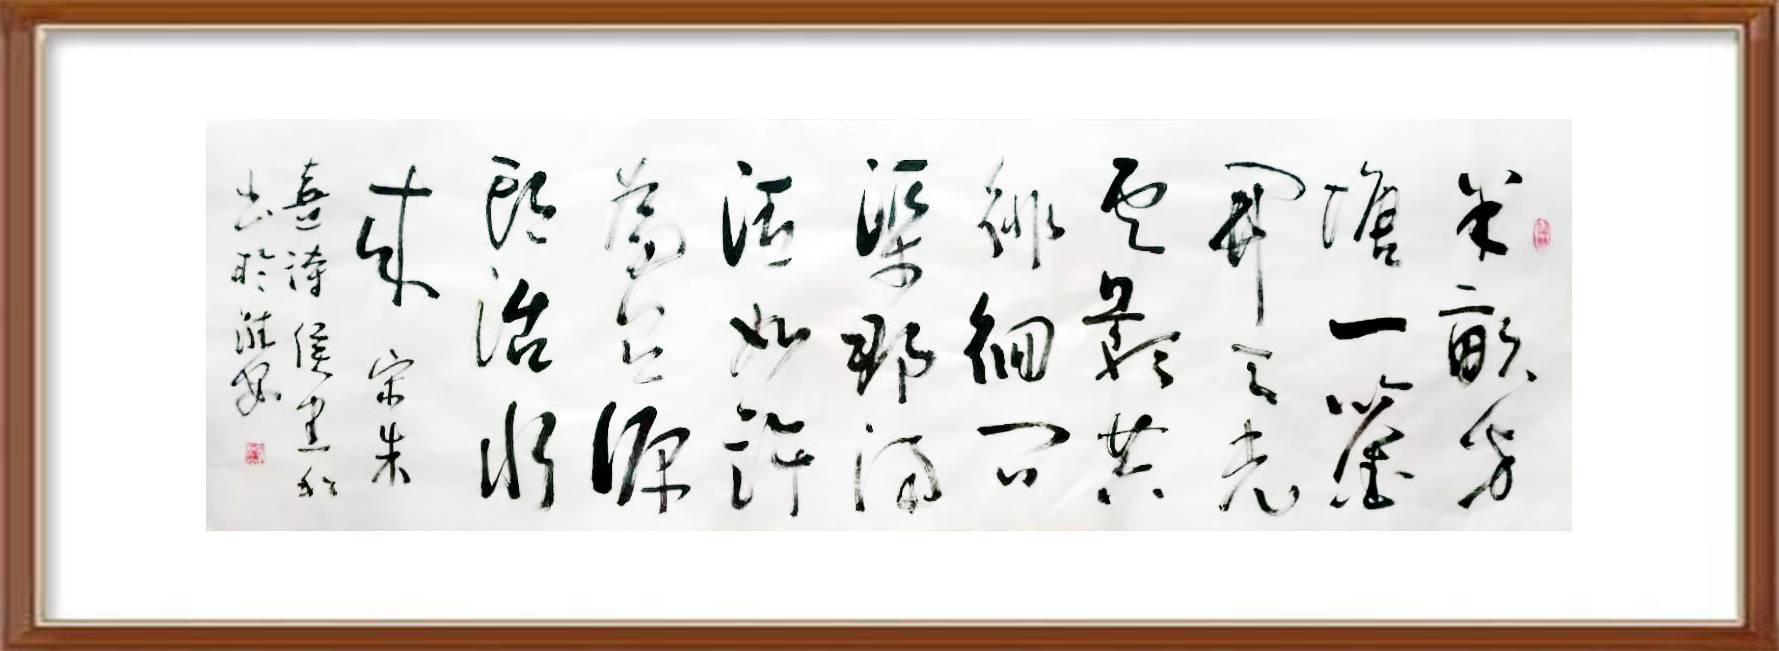 半畝方
塘一鑒
開天光
雲影共
徘徊問
渠那得
清如許
為有源
頭活水
來 宋朱
熹詩 侯建
書於淮安